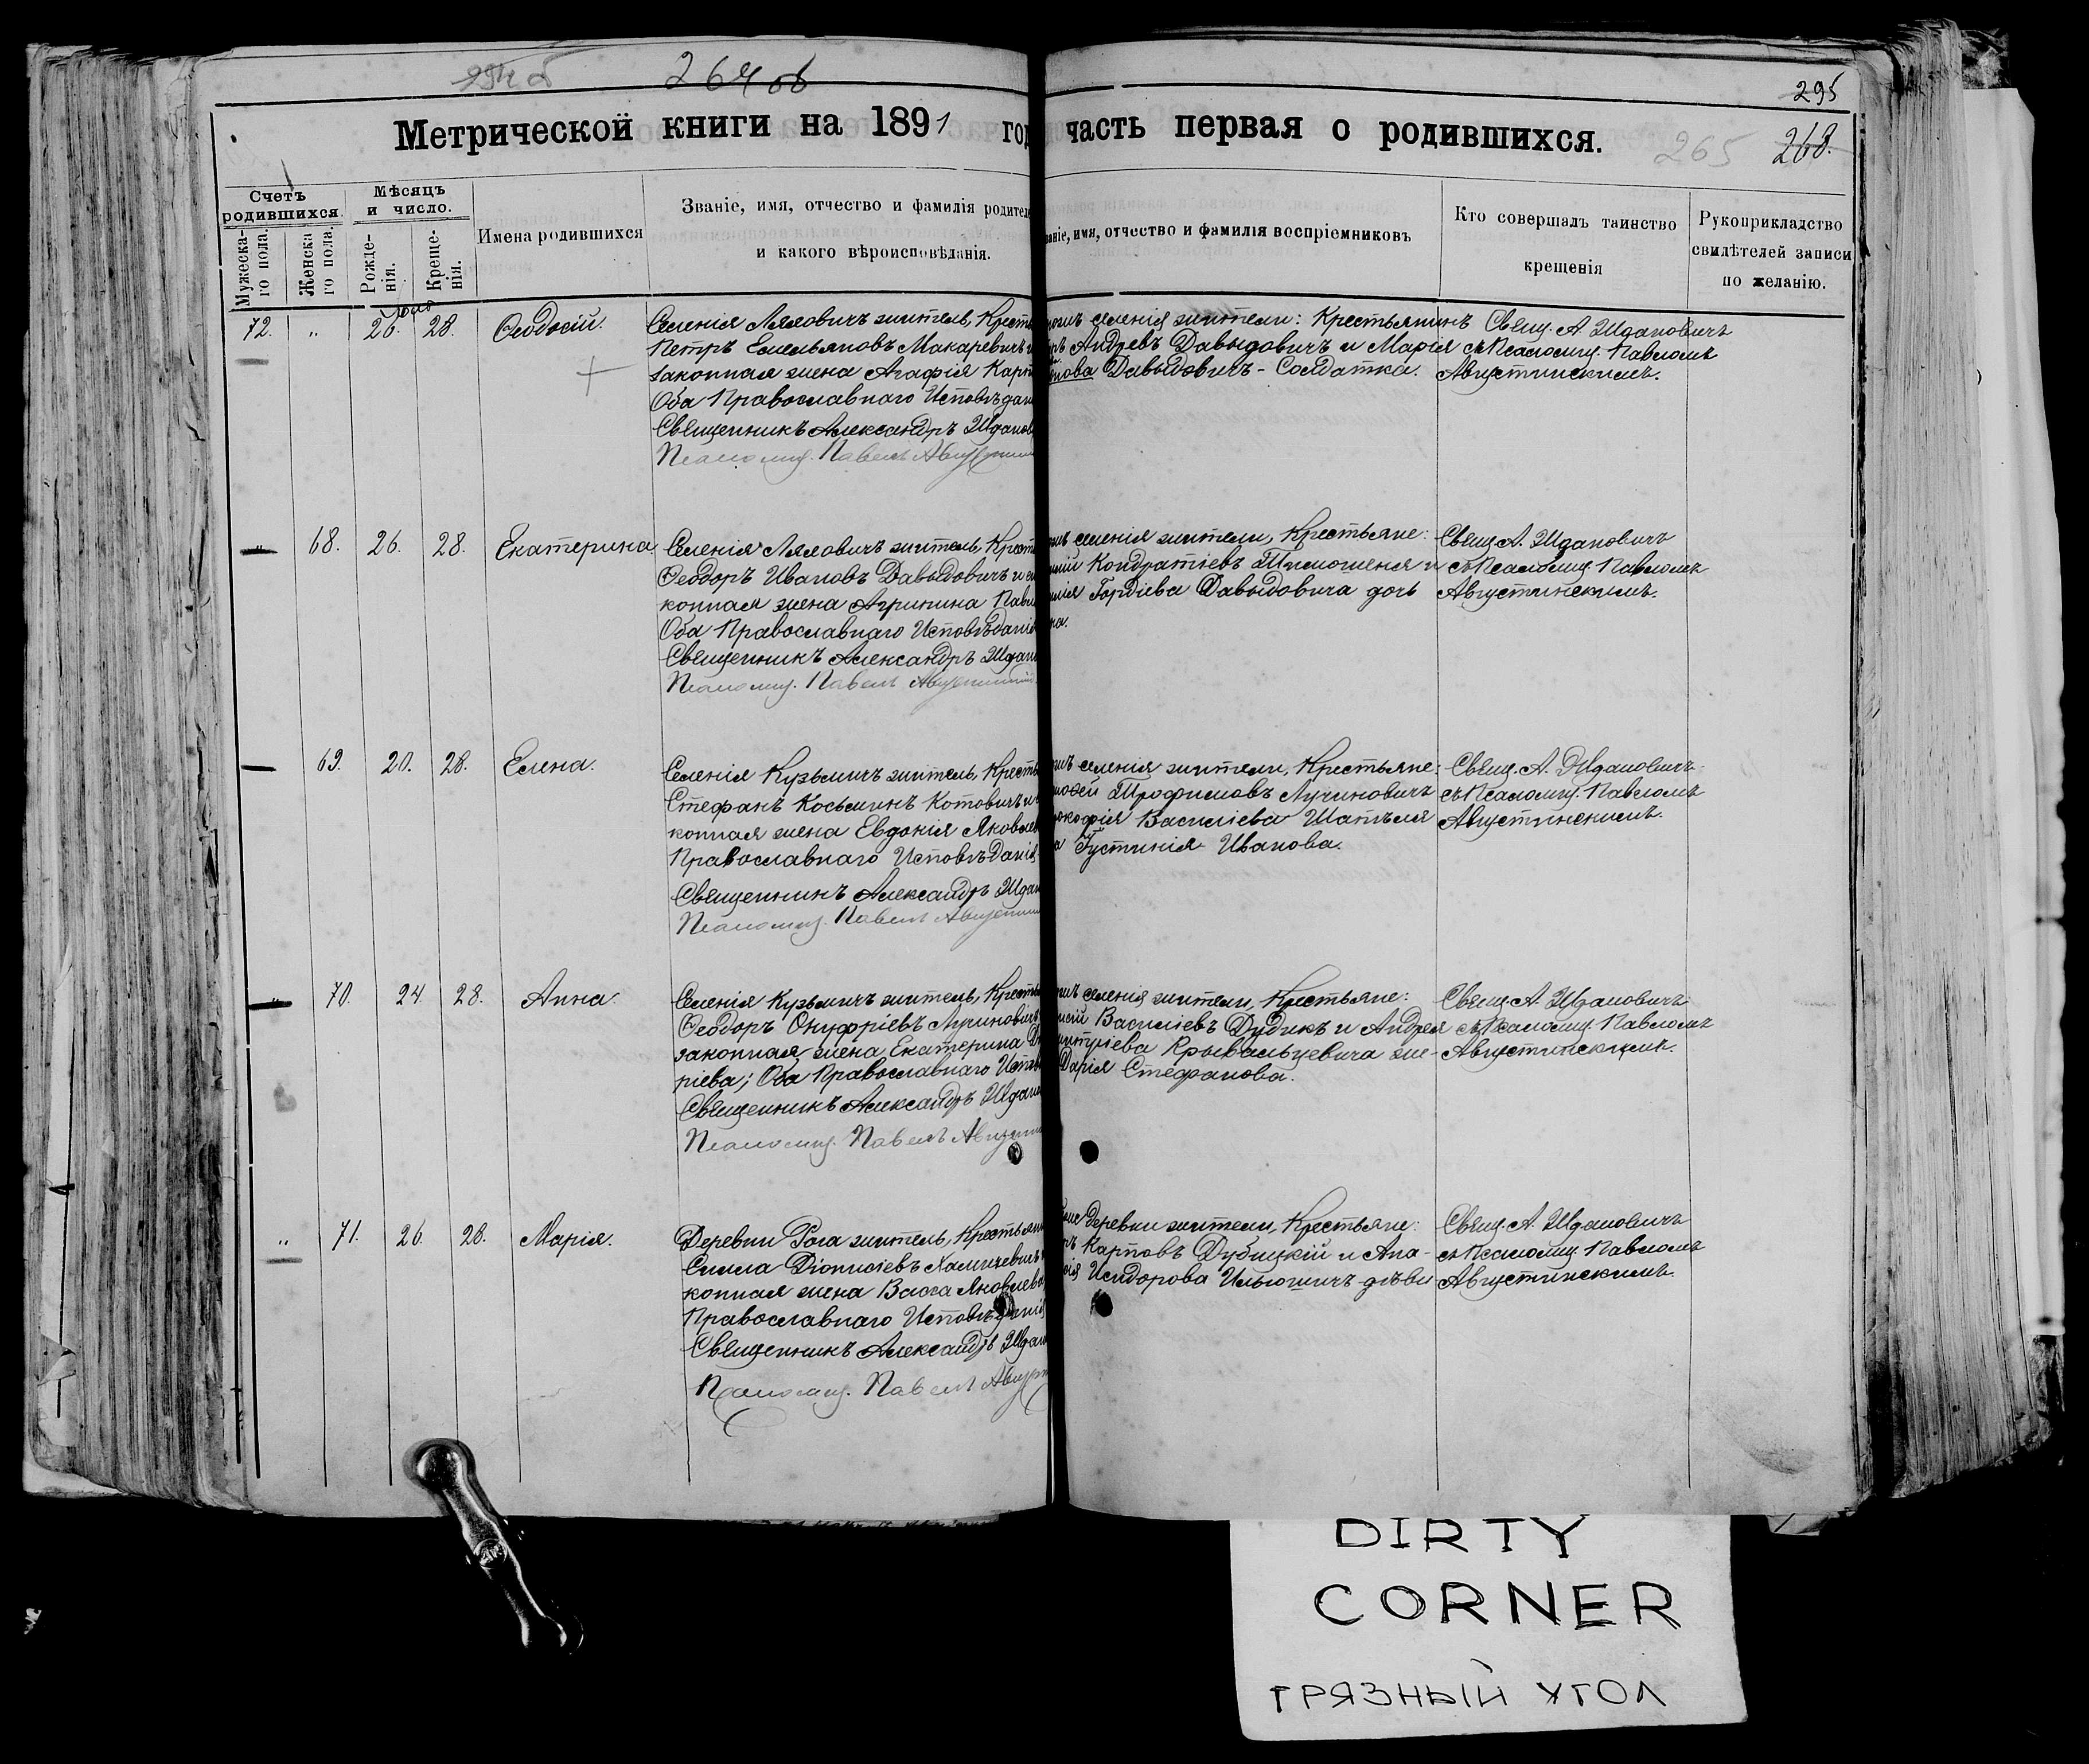 264 об
295
Метрической книги на 1891 год часть первая о родившихся.
265 268.
Счетъ родившихся.
Мѣсяцъ и число.
Мужеска-го пола.
Женска го пола.
Рожде-нія.
Креще-нія.
Имена родившихся
Званіе, имя, отчество и фамилія родителе
и какого вѣроисповѣданія.
ваніе, имя, отчество и фамилія воспріемниковъ
Кто совершалъ таинство
крещенія
Рукоприкладство
свидѣтелей записи
по желанію.
72. " 26. 28. Ѳеодосій.
Селенія Ляховичъ житель, Крест
Петръ Емельяновъ Макаревичъ и
законная жена Агафія Карп
Оба Православнаго Исповѣдан
Священникъ Александръ Жданов
Псаломщ. Павелъ Августин
селенія жители: Крестьянинъ
Андреевъ Давыдовичъ и Марія
нова Давыдовичъ - Солдатка.
Свящ. А Ждановичъ
съ Псаломщ. Павломъ
Августинскимъ.
" 68. 26. 28. Екатерина.
Селенія Ляховичъ житель, Крест
Ѳеодоръ Ивановъ Давыдовичъ и за
конная жена Агрипина Павл
Оба Православнаго Исповѣданія
Священникъ Александръ Ждан
Псаломщ. Павелъ Августинскій.
селенія жители, Крестьяне:
Кондратіевъ Тимошеня и
Гордіева Давыдовича дочь
на.
Свящ. А. Ждановичъ
съ Псаломщ. Павломъ
Августинскимъ.
69. 20. 28. Елена.
Селенія Кузьмичъ житель, Кресть
Стефанъ Косьминъ Котовичъ и
конная жена Евдокія Яковлев
Православнаго Исповѣданія
Священникъ Александръ Ждан
Псаломщ. Павелъ Августин
селенія жители, Крестьяне:
Трофимовъ Лучиновичъ
рокофія Василіева Шапѣля
Густинія Иванова.
Свящ. А. Ждановичъ
съ Псаломщ. Павломъ
Августинскимъ.
" 70. 24. 28. Анна.
Селенія Кузьмичъ житель, Кресть
Ѳеодоръ Онуфріевъ Лучиновичъ
законная жена Екатерина
ріева; Оба Православнаго Испов
Священникъ Александръ Ждан
Псаломщ. Павелъ Августин
селенія жители, Крестьяне:
Василіевъ Дудикъ и Андрея
Крывальцевича же-
Дарія Стефанова.
Свящ. А. Ждановичъ
съ Псаломщ. Павломъ
Августинскимъ.
" 71. 26. 28. Марія.
Деревни Гога житель, Крестьян
Сила Діонисіевъ Хамицевичъ
конная жена Васса Яковлева
Православнаго Исповѣданія
Священникъ Александръ Ждан
Псаломщ. Павелъ Август
деревни жители, Крестьяне:
Карповъ Дубицкій и Ана-
Исидорова Ильюшичъ дѣви
Свящ. А. Ждановичъ
съ Псаломщ. Павломъ
Августинскимъ.
DIRTY
CORNER
ГРЯЗНЫЙ УГОЛ